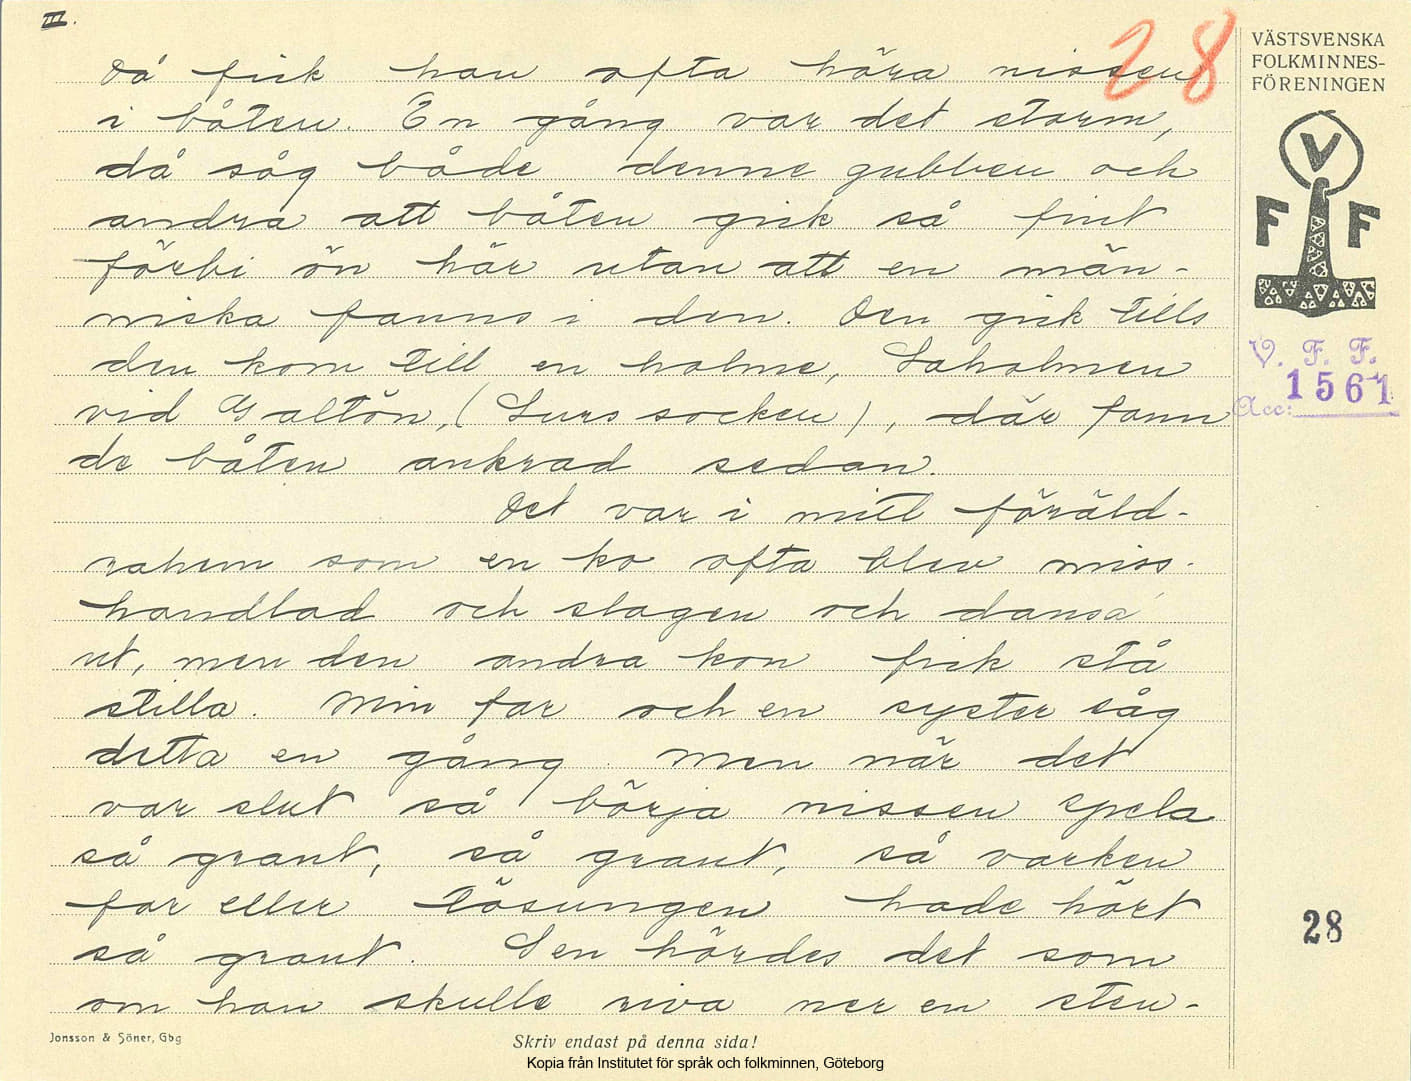 III.
28
Då fick han ofta höra nissen
i båten. En gång var det storm,
då såg både denne gubben och
andra att båten gick så fint
förbi ön här utan att en män-
niska fanns i den. Den gick tills
den kom till en holme, Saholmen
vid Galtön, (Lurs socken), där fann
de båten ankrad sedan.
Det var i mitt föräld-
rahem som en ko ofta blev miss-
handlad och slagen och dansa'
ut, men den andra kon fick stå
stilla. Min far och en syster såg
detta en gång. Men när det
var slut så börja nissen spela
så grant, så grant, så varken
far eller tösungen hade hört
så grant. Sen hördes det som
om han skulle riva ner en sten-
VÄSTSVENSKA
FOLKMINNES-
FÖRENINGEN
V
F F
V. F. F.
Acc: 1561
28
Jonsson & Söner, Gbg
Skriv endast på denna sida!
Kopia från Institutet för språk och folkminnen, Göteborg